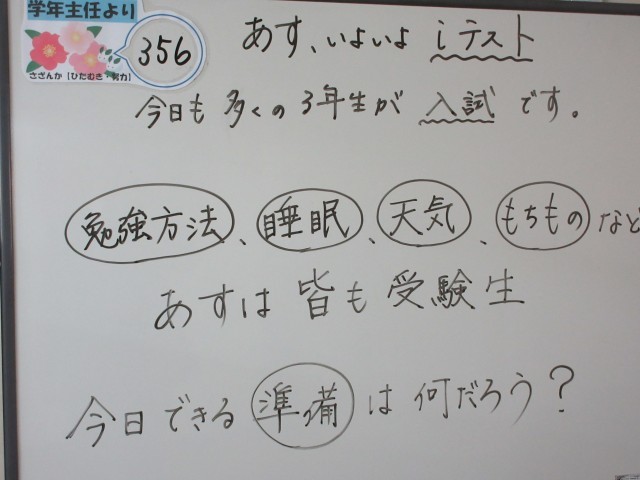 学年主任より
356
さざんか【ひたむき・努力】
あす、いよいよ iテスト
今日も 多くの 3年生が 入試 です。
勉強方法、睡眠、天気、もちもの など
あすは 皆も 受験生
今日 できる 準備 は 何だろう?